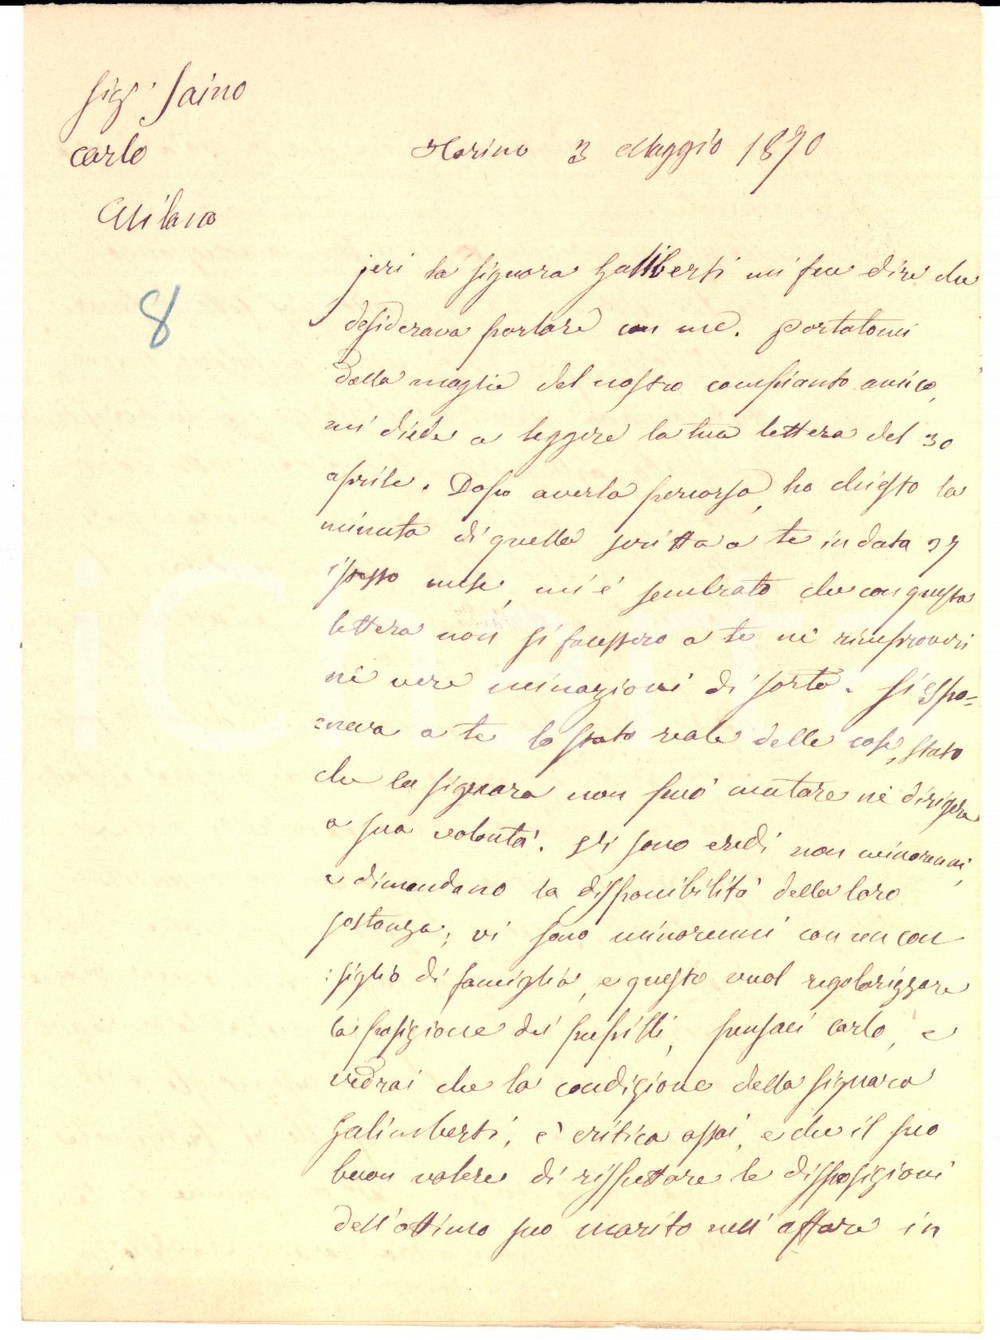 Sig.r Saino
Carlo
Milano
Torino 3 Maggio 1870
8
jeri la signora Galimberti mi feu dire che
desiderava parlare con me. Portatomi
dalla moglie del nostro compianto amico,
mi diede a leggere la tua lettera del 30
aprile. Dopo averla percorsa, ho chiesto la
minuta di quella scritta a te in data 27
istesso mese, mi è sembrato che con questa
lettera non si facessero a te nè rimproveri
nè vere minazioni di sorta. Si espo=
=neva a te lo stato reale delle cose, stato
che la signora non può mutare nè dirigere
a sua volontà. Vi sono eredi non minorenni,
e dimandano la disponibilità della loro
sostanza; vi sono minorenni con un con
:siglio di famiglia, e questo vuol regolarizzare
la posizione dei pupilli, pensaci Carlo, e
vedrai che la condizione della signora
Galimberti, è critica assai, e che il suo
buon volere di rispettare le disposizioni
dell'ottimo suo marito nell'affare in
iC